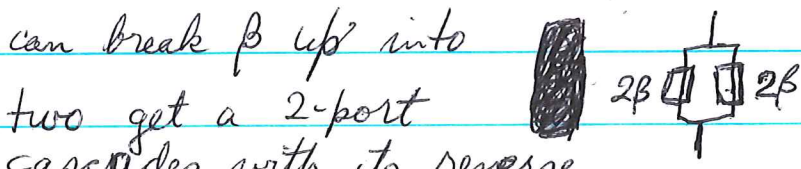 can break β up into
two get a 2-port
2β 2β
cascades with its reverse